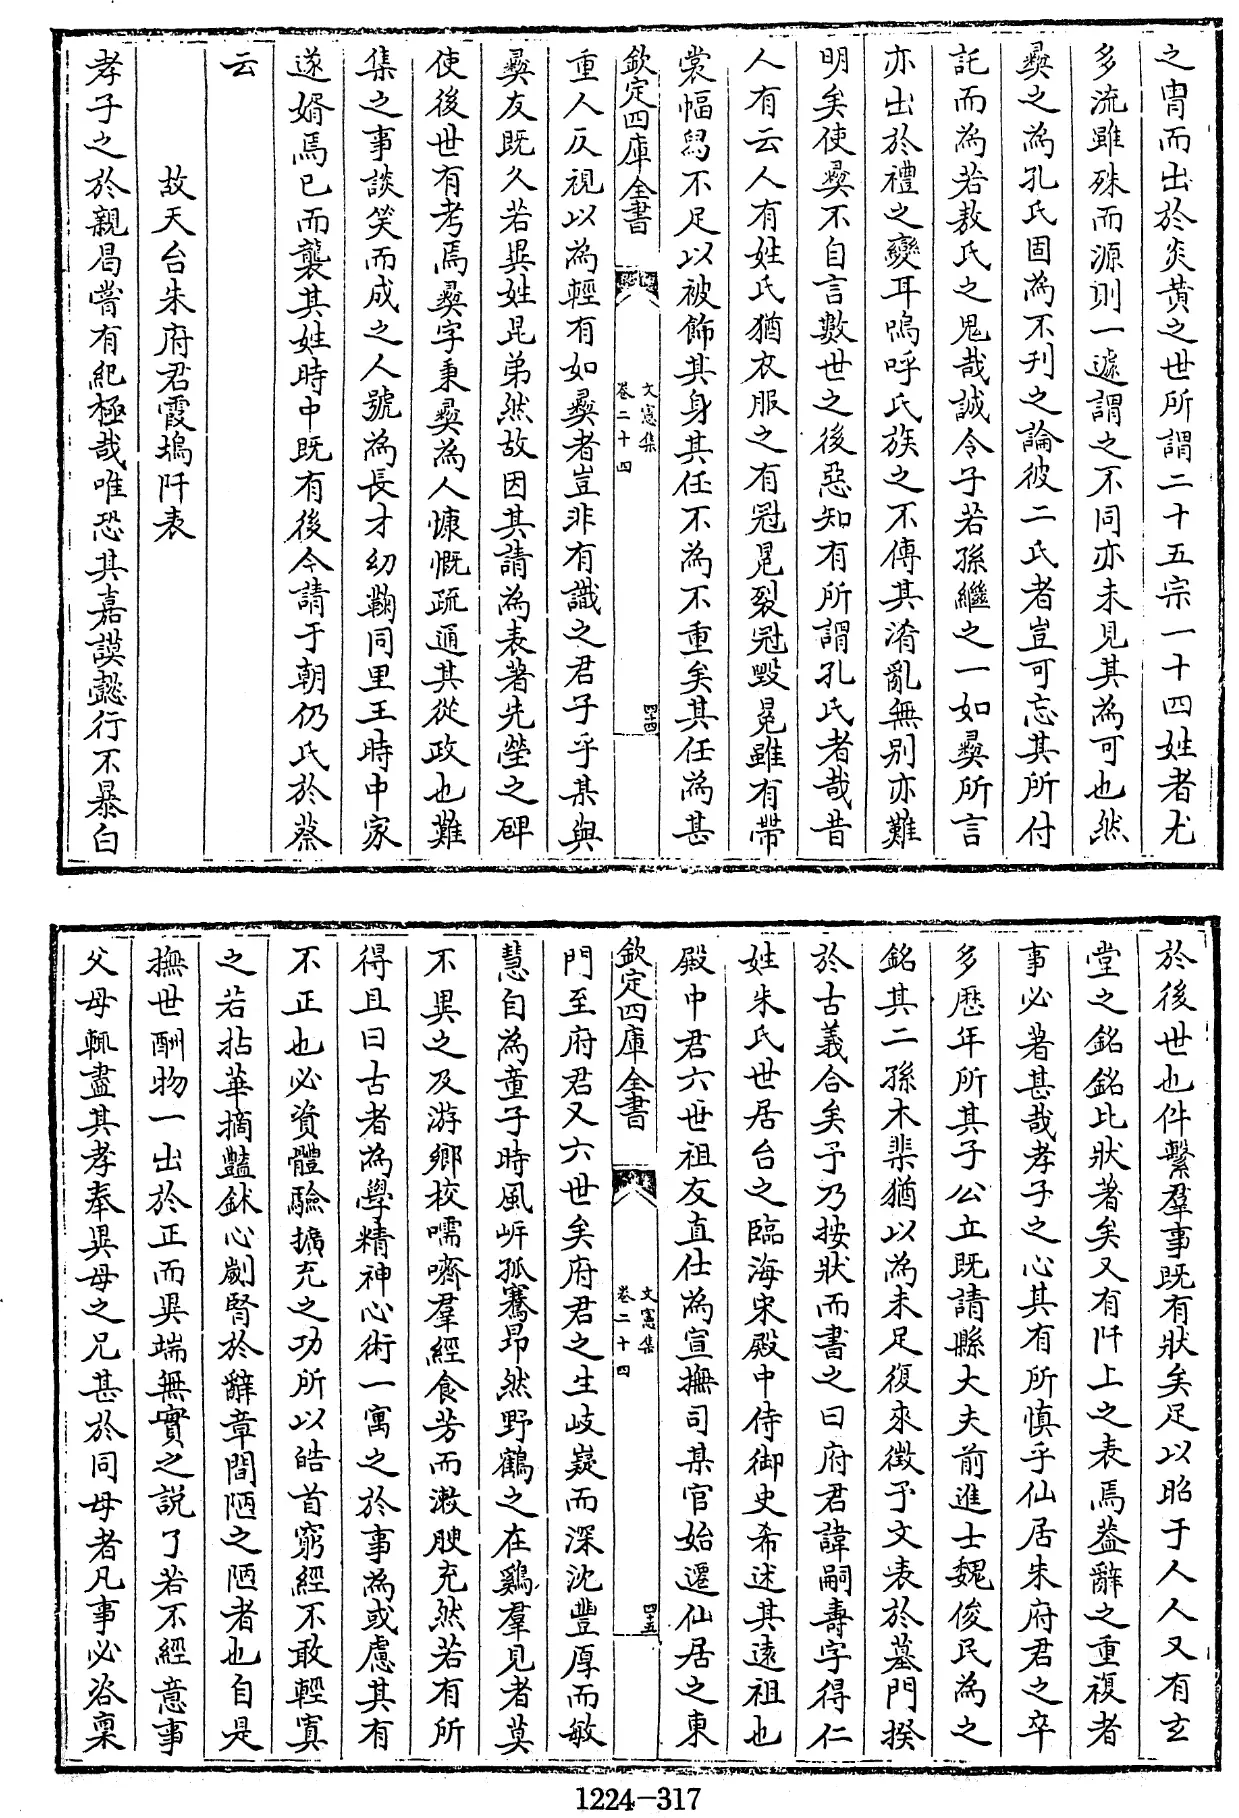 之胄而出於炎黄之世所謂二十五宗一十四姓者尤
多流雖殊而源則一遽謂之不同亦未見其為可也然
彛之為孔氏固為不刋之論彼二氏者豈可忘其所付
託而為若敖氏之鬼哉誠令子若孫繼之一如彛所言
亦出於禮之變耳嗚呼氏族之不傳其淆亂無别亦難
明矣使彛不自言數世之後惡知有所謂孔氏者哉昔
人有云人有姓氏猶衣服之有冠冕裂冠毁冕雖有帶
裳幅舄不足以被飾其身其任不為不重矣其任為甚
欽定四庫全書
文憲集
卷二十四
四十四
重人反視以為輕有如彛者豈非有識之君子乎某與
彛友既久若異姓昆弟然故因其請為表著先塋之碑
使後世有考焉彛字秉彛為人慷慨疏通其從政也難
集之事談笑而成之人號為長才幼鞠同里王時中家
遂婿焉已而襲其姓時中既有後今請于朝仍氏於蔡
云
故天台朱府君霞塢阡表
孝子之於親曷嘗有紀極哉唯恐其嘉謨懿行不暴白
於後世也件繫羣事既有狀矣足以昭于人人又有玄
堂之銘銘比狀著矣又有阡上之表焉葢辭之重複者
事必著甚哉孝子之心其有所慎乎仙居朱府君之卒
多歴年所其子公立既請縣大夫前進士魏俊民為之
銘其二孫木棐猶以為未足復來徴予文表於墓門揆
於古義合矣予乃按狀而書之曰府君諱嗣壽字得仁
姓朱氏世居台之臨海宋殿中侍御史希述其遠祖也
殿中君六世祖友直仕為宣撫司某官始遷仙居之東
欽定四庫全書
文憲集
卷二十四
四十五
門至府君又六世矣府君之生岐嶷而深沈豐厚而敏
慧自為童子時風㟁孤騫昂然野鶴之在鷄羣見者莫
不異之及游鄉校嚅嚌羣經食芳而潄腴充然若有所
得且曰古者為學精神心術一寓之於事為或慮其有
不正也必資體驗擴充之功所以皓首窮經不敢輕寘
之若拈華摘豔鉥心劌腎於辭章間陋之陋者也自是
撫世酬物一出於正而異端無實之説了若不經意事
父母輒盡其孝奉異母之兄甚於同母者凡事必咨稟
1224—317